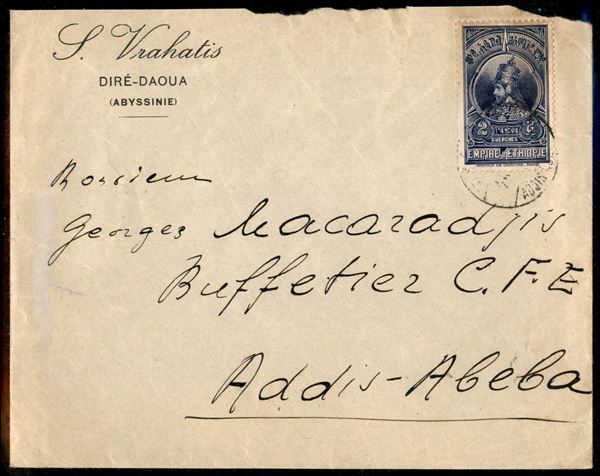 S. Vrahatis
DIRÉ-DAOUA
(ABYSSINIE)
2
GUERCHES
EMPIRE D'ETHIOPIE
ADDIS
Monsieur
Georges Macaradjis
Buffetier C.F.E
Addis-Abeba